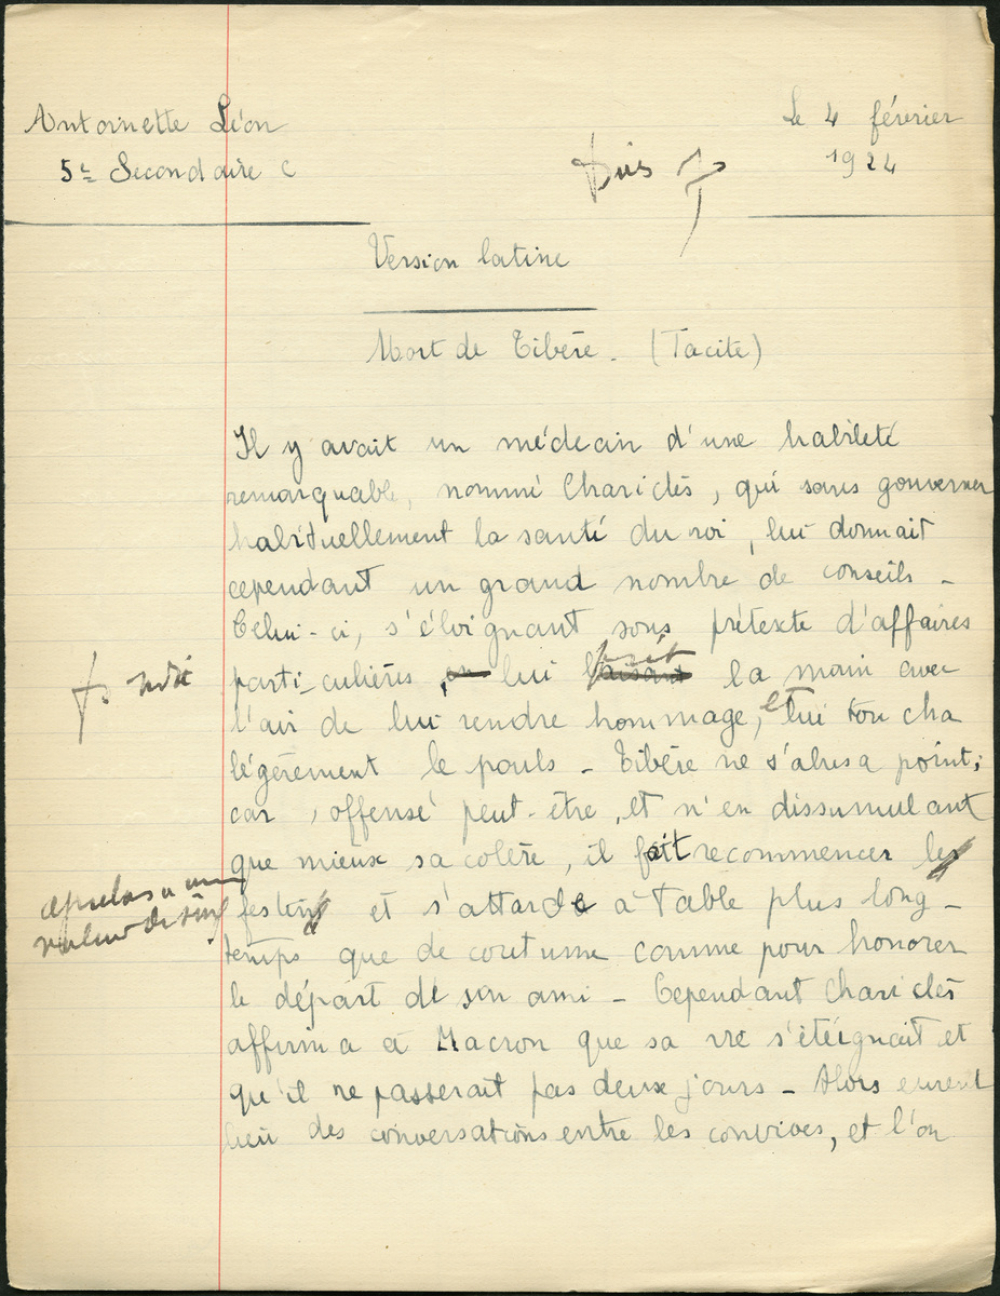 Antoinette Léon
Le 4 février
5e Secondaire C
1924
Version latine
Mort de Tibère. (Tacite)
Il y avait un médecin d'une habileté
remarquable, nommé Chariclès, qui sans gouverner
habituellement la santé du roi, lui donnait
cependant un grand nombre de conseils -
Celui-ci, s'éloignant sous prétexte d'affaires
prit
parti-culières, en lui baisant la main avec
l'air de lui rendre hommage, et lui toucha
légèrement le pouls - Tibère ne s'abusa point;
car, offensé peut-être, et n'en dissumulant
que mieux sa colère, il fait recommencer les
festins et s'attarde à table plus long-
temps que de coutume comme pour honorer
le départ de son ami - Cependant Chariclès
affirma à Macron que sa vie s'éteignait et
qu'il ne passerait pas deux jours - Alors eurent
lieu des conversations entre les convives, et l'on